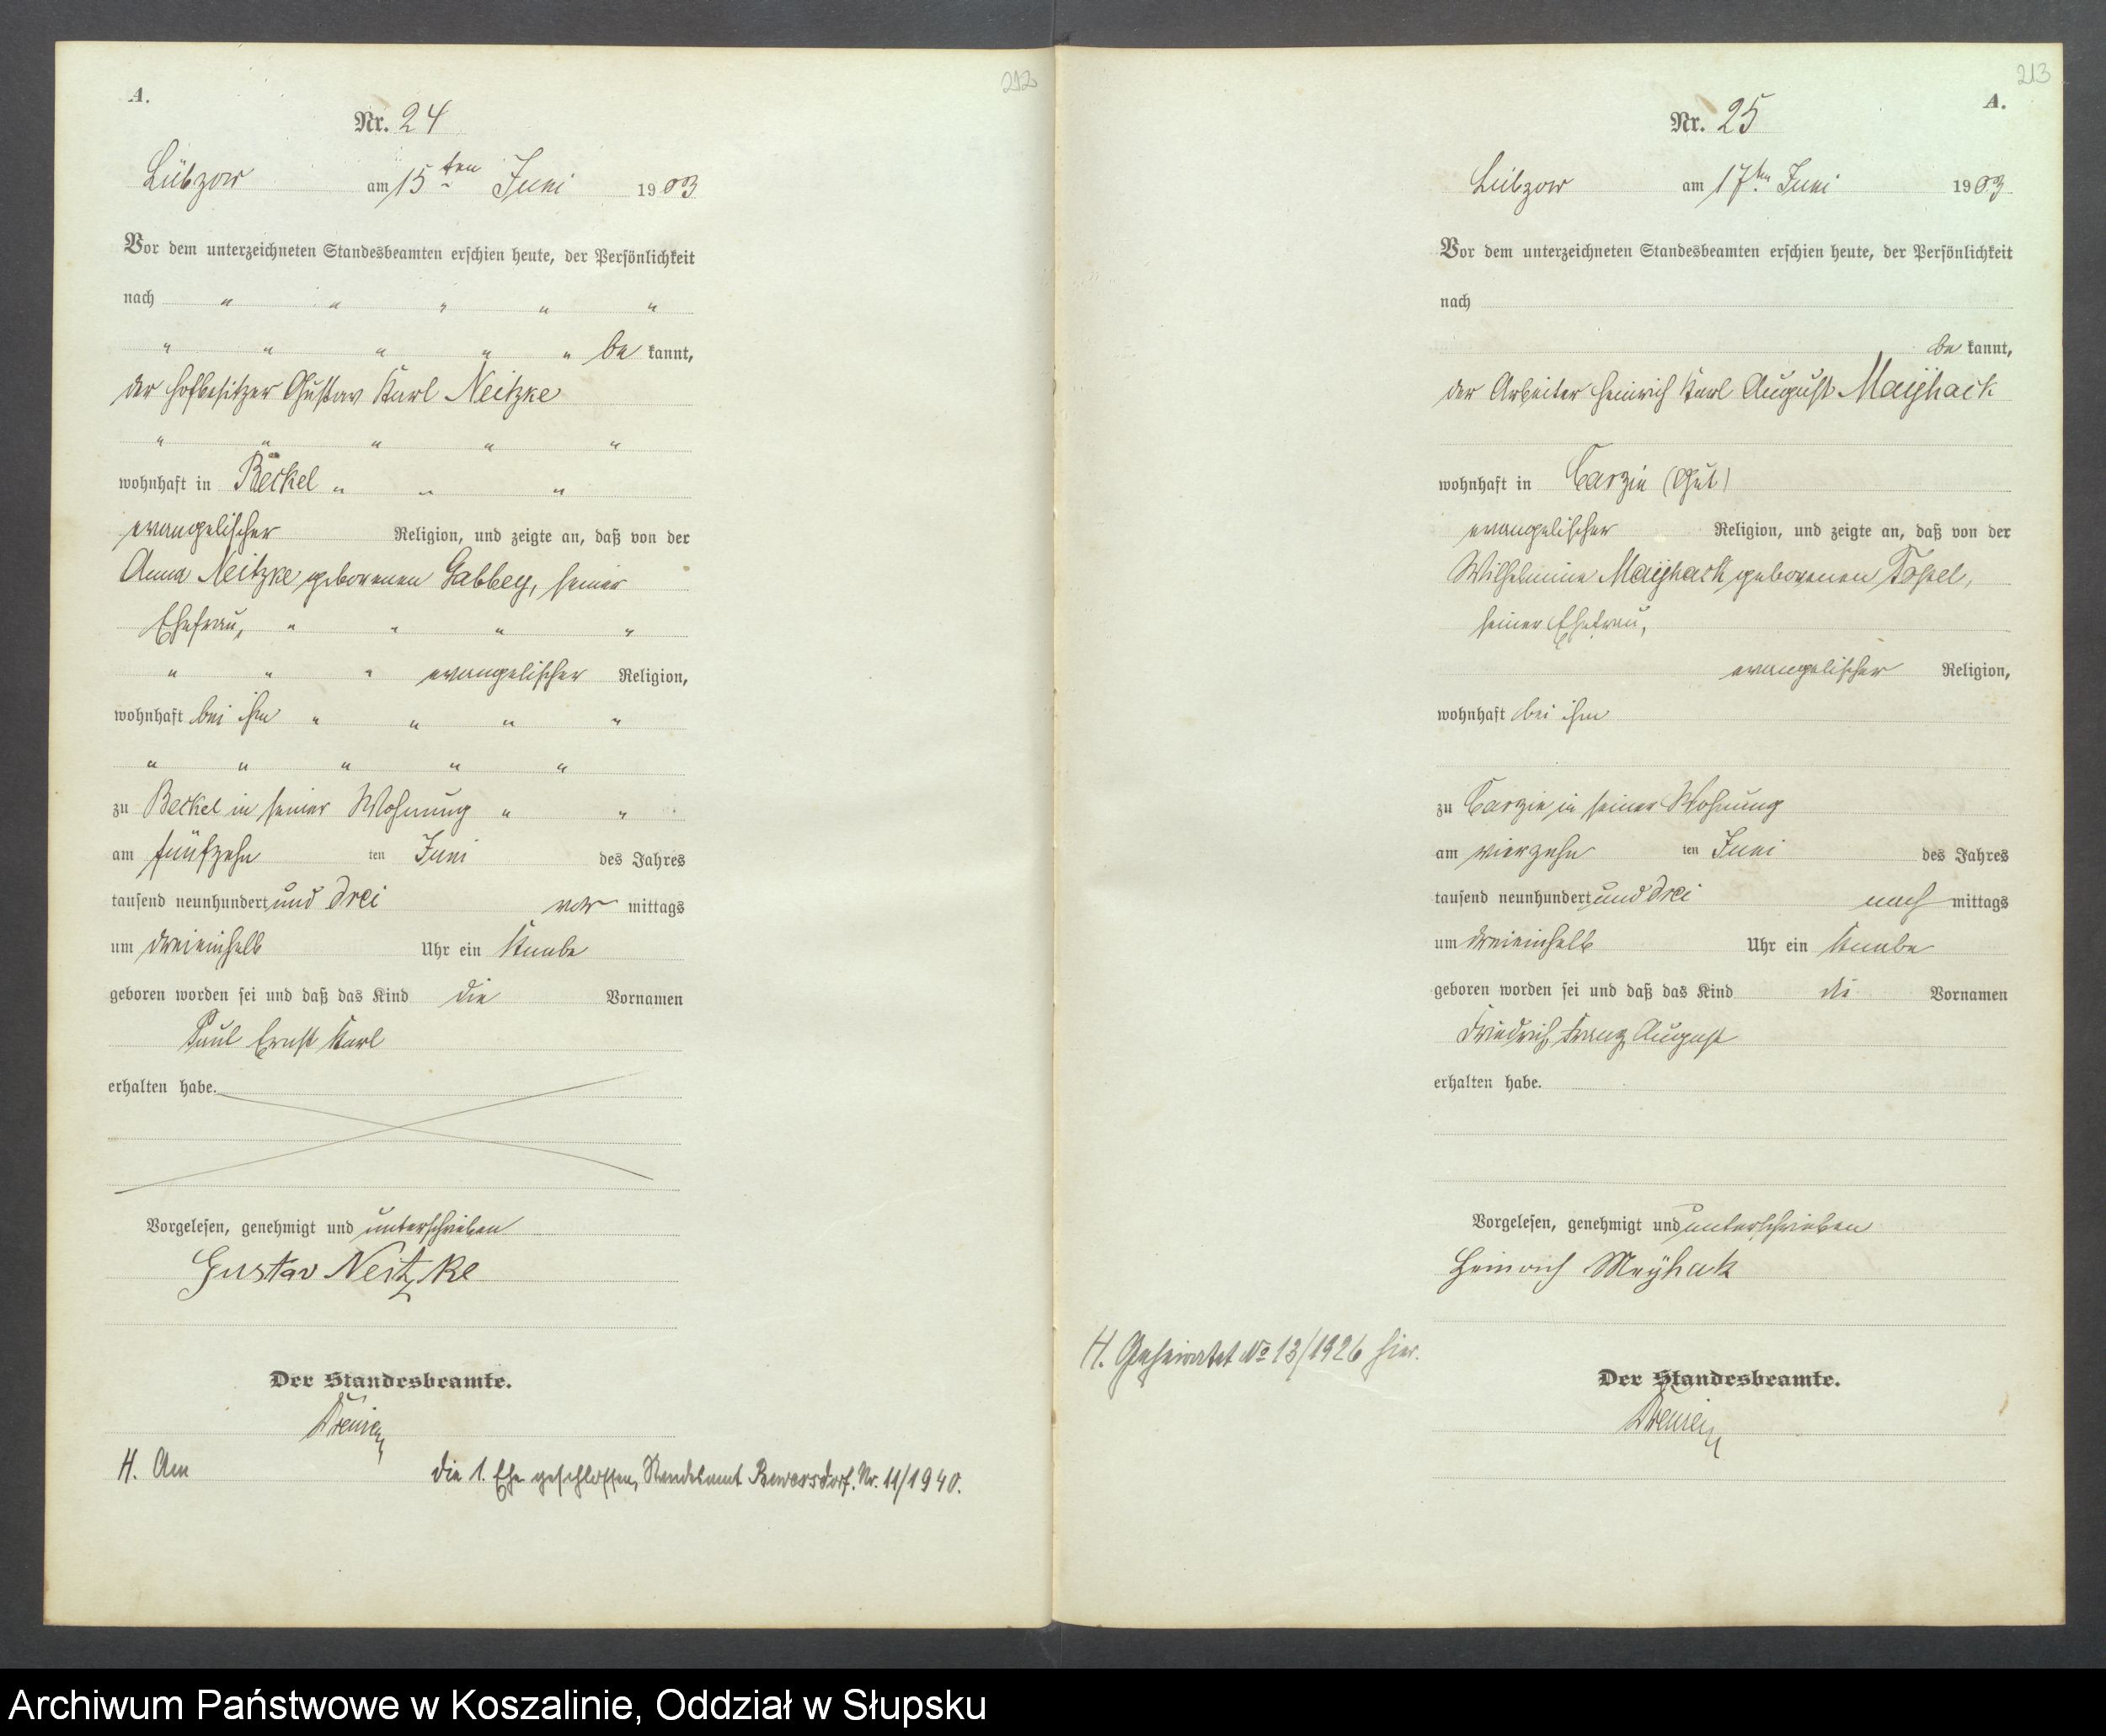 212
A.
Nr. 24
Lübzow am 15ten Juni 1903
Vor dem unterzeichneten Standesbeamten erschien heute, der Persönlichkeit
nach " " " " "
" " " " " be kannt,
der Hofbesitzer Gustav Karl Neitzke
" " " " "
wohnhaft in Beckel " " "
evangelischer Religion, und zeigte an, daß von der
Anna Neitzke geborenen Gabbey, seiner
Ehefrau, " " " "
" " " evangelischer Religion,
wohnhaft bei ihm " " " "
" " " " "
zu Beckel in seiner Wohnung " "
am fünfzehn ten Juni des Jahres
tausend neunhundert und drei vor mittags
um dreieinhalb Uhr ein Knabe
geboren worden sei und daß das Kind die Vornamen
Paul Ernst Karl
erhalten habe.
Vorgelesen, genehmigt und unterschrieben
Gustav Neitzke
Der Standesbeamte.
H. Am die 1. Ehe geschlossen, Standesamt Bewersdorf. Nr. 11/1940.
213
A.
Nr. 25
Lübzow am 17ten Juni 1903
Vor dem unterzeichneten Standesbeamten erschien heute, der Persönlichkeit
nach
be kannt,
der Arbeiter Heinrich Karl August Mayhack
wohnhaft in Carzin (Gut)
evangelischer Religion, und zeigte an, daß von der
Wilhelmine Mayhack geborenen
seiner Ehefrau,
evangelischer Religion,
wohnhaft bei ihm
zu Carzin in seiner Wohnung
am vierzehn ten Juni des Jahres
tausend neunhundert und drei nach mittags
um dreieinhalb Uhr ein Knabe
geboren worden sei und daß das Kind die Vornamen
Friedrich Franz August
erhalten habe.
Vorgelesen, genehmigt und unterschrieben
Heinrich Meÿhak
H. Geheiratet No 13/1926 hier.
Der Standesbeamte.
Archiwum Państwowe w Koszalinie, Oddział w Słupsku